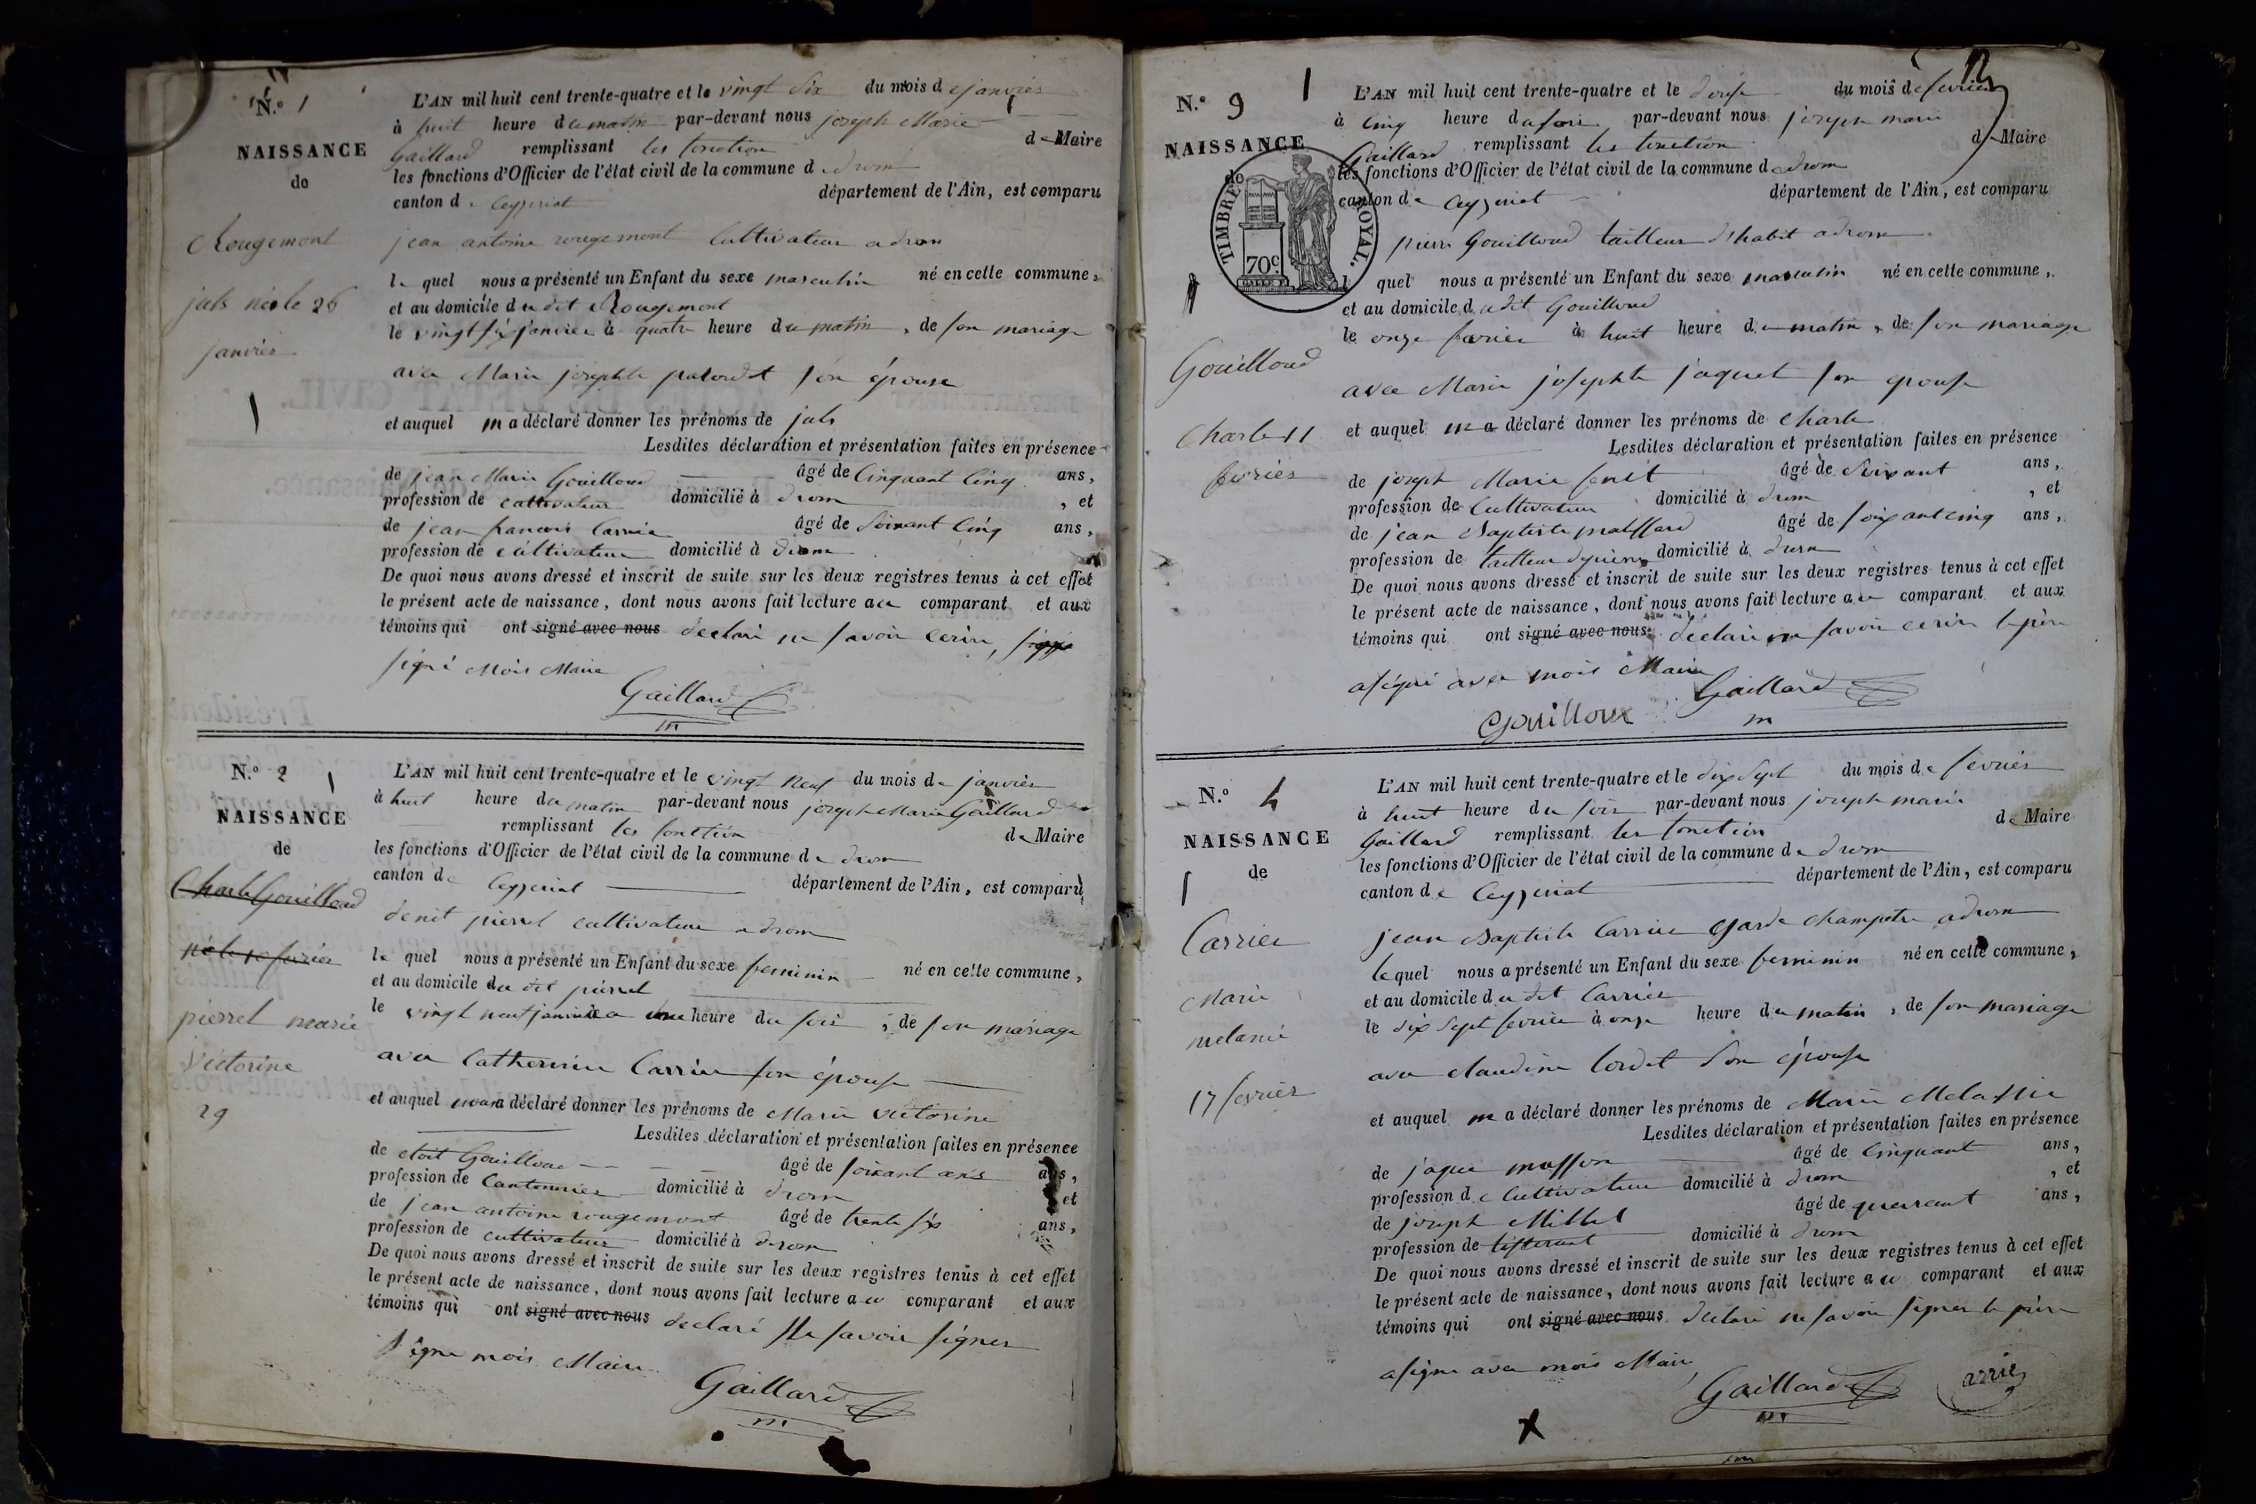 N.º 1
NAISSANCE
de
Rougemont
juls né le 26
janvier
L'AN mil huit cent trente-quatre et le vingt six du mois de janvier
à huit heure du matin par-devant nous joseph Marie
Gaillard remplissant les fonction de Maire
les fonctions d'Officier de l'état civil de la commune de drom
canton de Ceyzeriat département de l'Ain, est comparu
jean antoine rougemont Cultivateur a drom
le quel nous a présenté un Enfant du sexe masculin né en cette commune,
et au domicile du dit Rougemont
le vingt six janvier à quatre heure du matin, de son mariage
avec Marie josephte son épouse
et auquel a déclaré donner les prénoms de juls
Lesdites déclaration et présentation faites en présence
de jean Marie Gouilloud âgé de Cinquant Cinq ans,
profession de cultivateur domicilié à drom, et
de jean francois Carrier âgé de Soixant Cinq ans,
profession de cultivateur domicilié à drom
De quoi nous avons dressé et inscrit de suite sur les deux registres tenus à cet effet
le présent acte de naissance, dont nous avons fait lecture au comparant et aux
témoins qui ont signé avec nous declaré ne savoir ecrire,
signé Mois Maire
Gaillard
N.º 2
NAISSANCE
de
Charle Gouilloud
né le 10 fevrier
pierrel marie
victorine
29
L'AN mil huit cent trente-quatre et le vingt neuf du mois de janvier
à huit heure du matin par-devant nous joseph Marie Gaillard
remplissant les fonction de Maire
les fonctions d'Officier de l'état civil de la commune de drom
canton de Ceyzeriat département de l'Ain, est comparu
denit pierrel cultivateur a drom
le quel nous a présenté un Enfant du sexe feminin né en cette commune,
et au domicile du dit pierrel
le vingt neuf janvier a une heure du soir, de son mariage
avec Catherine Carrier son épouse
et auquel a déclaré donner les prénoms de Marie victorine
Lesdites déclaration et présentation faites en présence
de Gouilloud âgé de soixant ans ans,
profession de Cantonnier domicilié à drom et
de jean antoine rougemont âgé de trente six ans,
profession de cultivateur domicilié à drom
De quoi nous avons dressé et inscrit de suite sur les deux registres tenus à cet effet
le présent acte de naissance, dont nous avons fait lecture au comparant et aux
témoins qui ont signé avec nous declaré ne savoir signer
signe mois Maire
Gaillard
12
N.º 9
NAISSANCE
de
TIMBRE ROYAL.
70c
Gouilloud
Charle 11
fevrier
L'AN mil huit cent trente-quatre et le douse du mois de fevrier
à Cinq heure du soir par-devant nous joseph marie
Gaillard remplissant les fonction de Maire
les fonctions d'Officier de l'état civil de la commune de drom
canton de Ceyzeriat département de l'Ain, est comparu
pierre Gouilloud tailleur d'habit a drom
l quel nous a présenté un Enfant du sexe masculin né en cette commune,
et au domicile du dit Gouilloud
le onze fevrier à huit heure du matin, de son mariage
avec Marie josephte jaquet son epouse
et auquel a déclaré donner les prénoms de Charle
Lesdites déclaration et présentation faites en présence
de joseph Marie âgé de Soixant ans,
profession de Cultivateur domicilié à drom, et
de jean Baptiste âgé de soixant cinq ans,
profession de tailleur domicilié à drom
De quoi nous avons dressé et inscrit de suite sur les deux registres tenus à cet effet
le présent acte de naissance, dont nous avons fait lecture au comparant et aux
témoins qui ont signé avec nous declaré ne savoir ecrire le père
a signé avec mois Maire
Gouilloux Gaillard
N.º 4
NAISSANCE
de
Carrier
Marie
melanie
17 fevrier
L'AN mil huit cent trente-quatre et le dix sept du mois de fevrier
à huit heure du soir par-devant nous joseph marie
Gaillard remplissant les fonction de Maire
les fonctions d'Officier de l'état civil de la commune de drom
canton de Ceyzeriat département de l'Ain, est comparu
jean Baptiste Carrier Garde Champetre a drom
le quel nous a présenté un Enfant du sexe feminin né en cette commune,
et au domicile du dit Carrier
le dix sept fevrier à onze heure du matin, de son mariage
avec claudine Cordet son épouse
et auquel a déclaré donner les prénoms de Marie
Lesdites déclaration et présentation faites en présence
de jaque masson âgé de Cinquant ans,
profession de Cultivateur domicilié à drom, et
de joseph Millet âgé de quarant ans,
profession de tisserant domicilié à drom
De quoi nous avons dressé et inscrit de suite sur les deux registres tenus à cet effet
le présent acte de naissance, dont nous avons fait lecture au comparant et aux
témoins qui ont signé avec nous declaré ne savoir signer le père
a signe avec mois Maire
Gaillard arrier